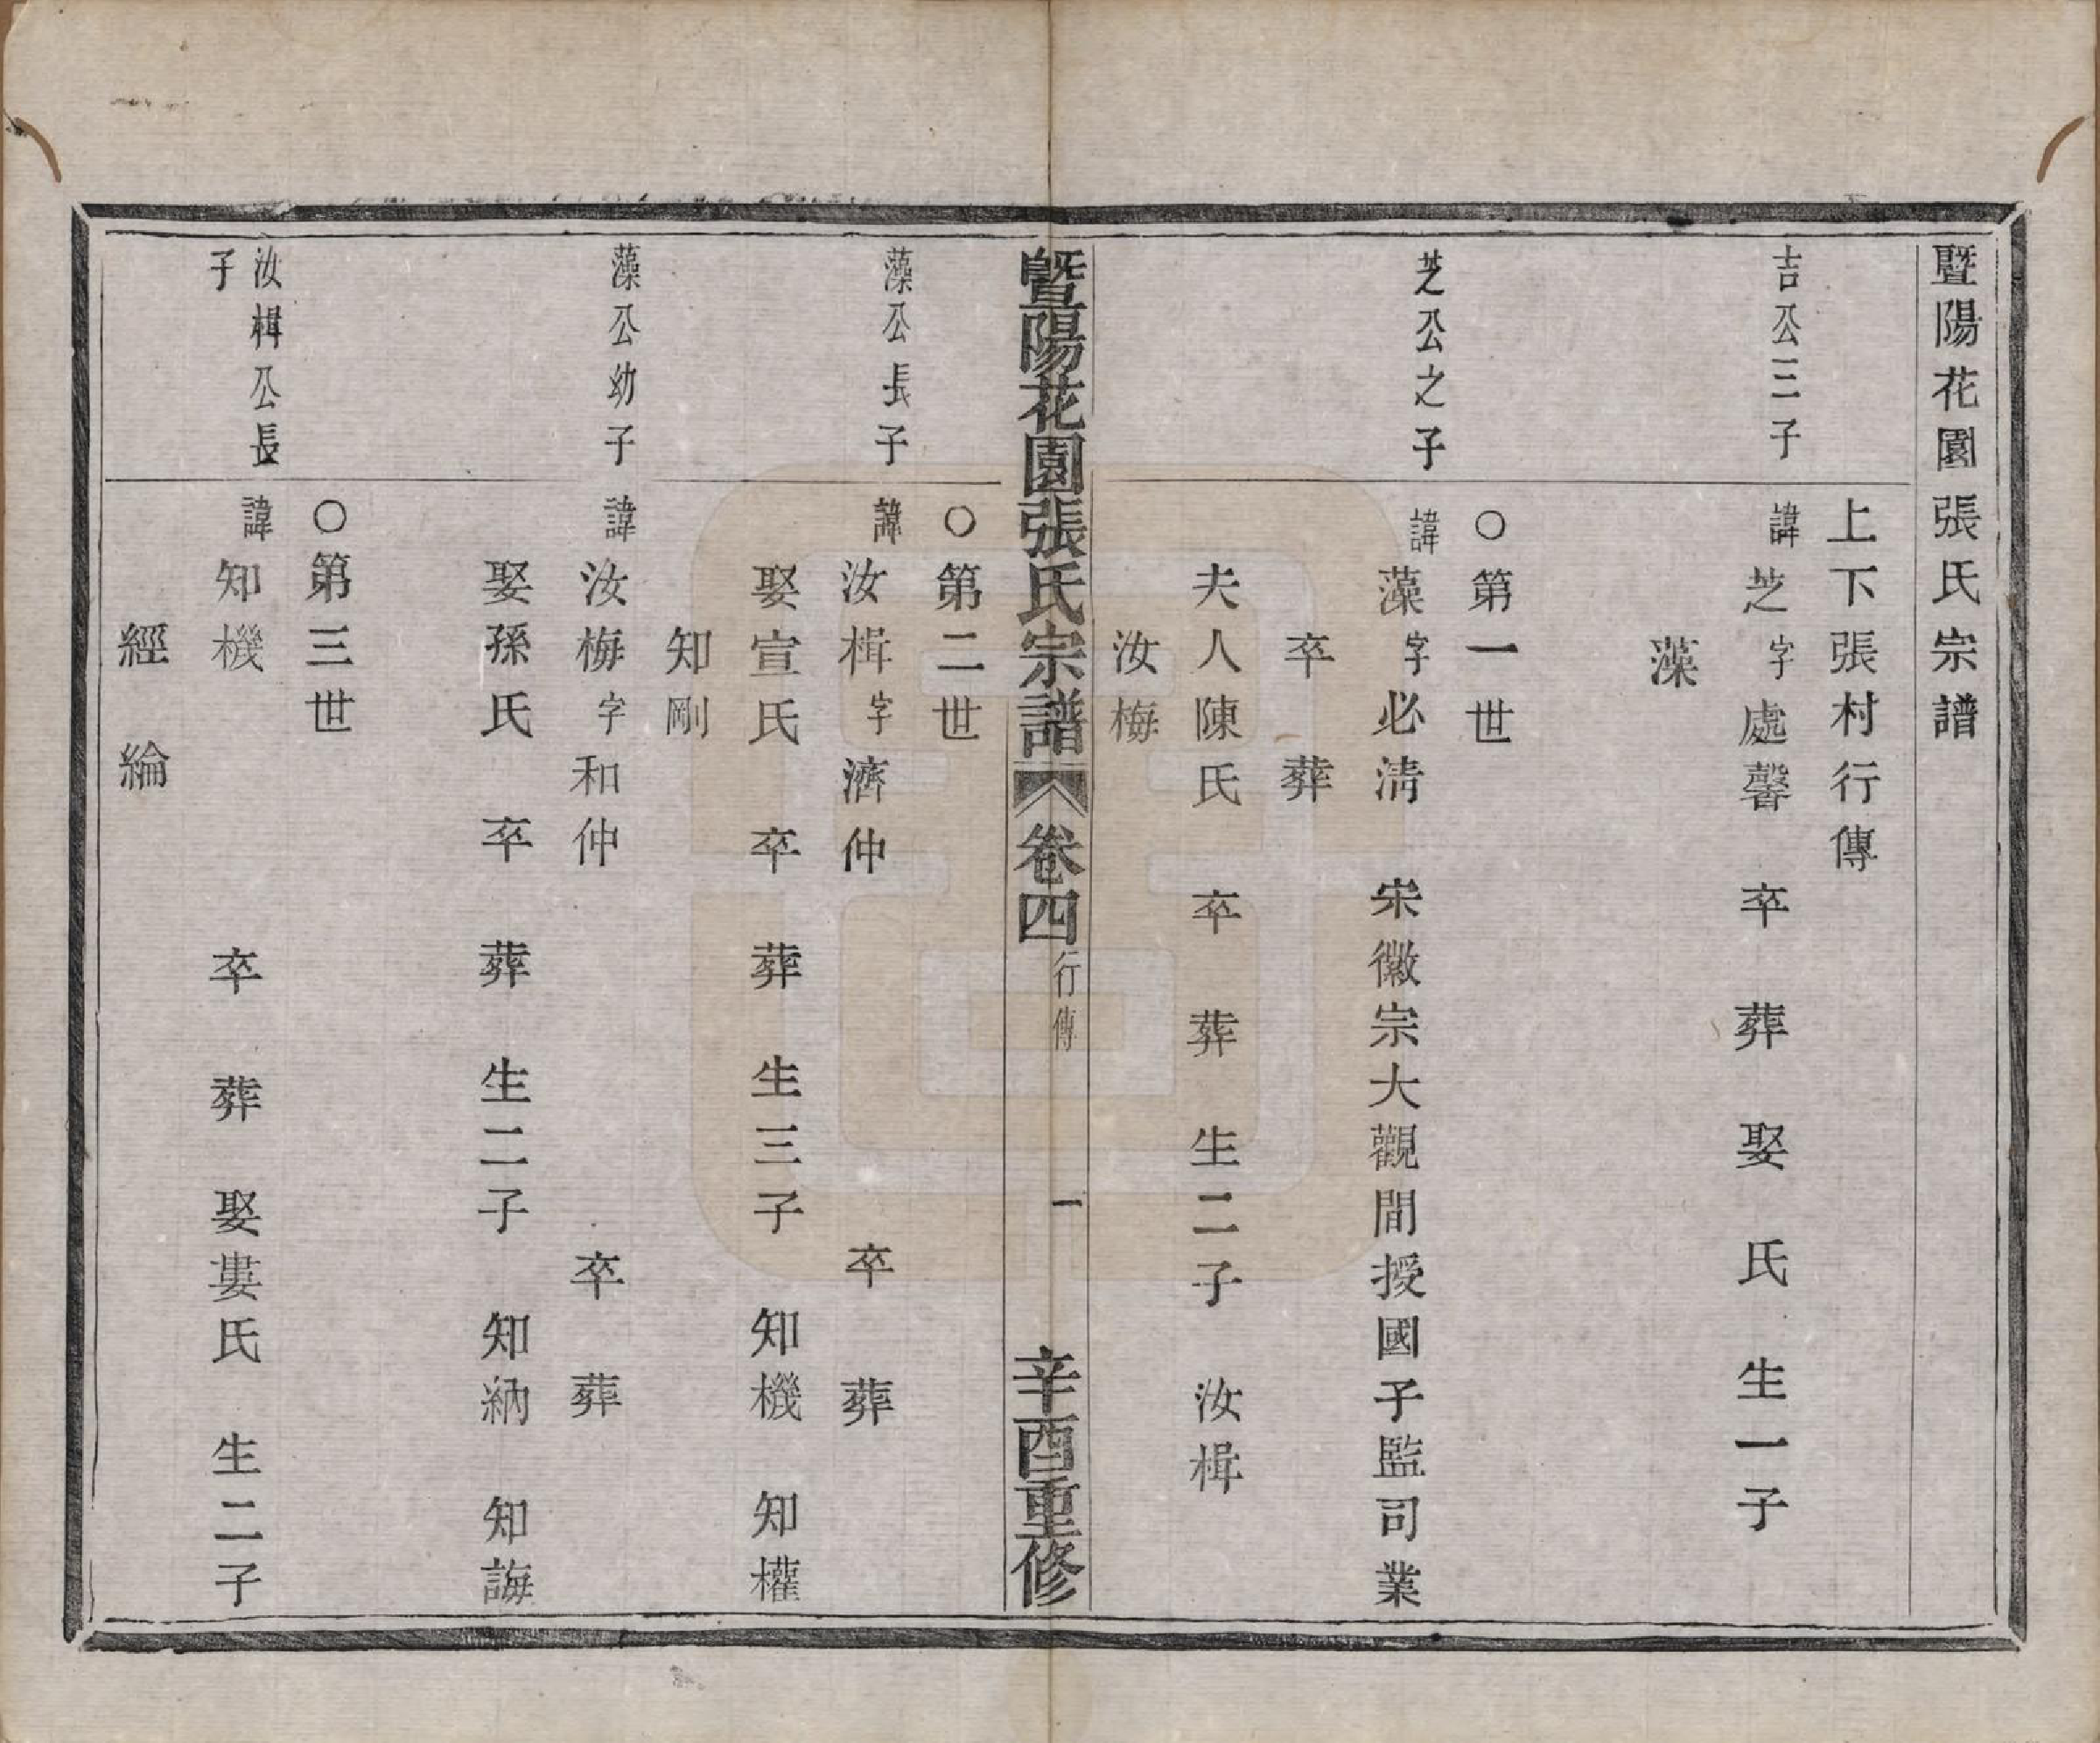 暨陽花園張氏宗譜
上下張村行傳
吉公三子
諱芝字處馨　卒　葬　娶　氏　生一子
藻
○第一世
芝公之子
諱藻字必清　宋徽宗大觀間授國子監司業
卒　葬
夫人陳氏　卒　葬　生二子　汝楫
汝梅
暨陽花園張氏宗譜　卷四　行傳　一　辛酉重修
○第二世
藻公長子
諱汝楫字濟仲　卒　葬
娶宣氏　卒　葬　生三子　知機　知權
知剛
藻公幼子
諱汝梅字和仲　卒　葬
娶孫氏　卒　葬　生二子　知納　知誨
○第三世
汝楫公長
子
諱知機　卒　葬　娶婁氏　生二子
經　綸